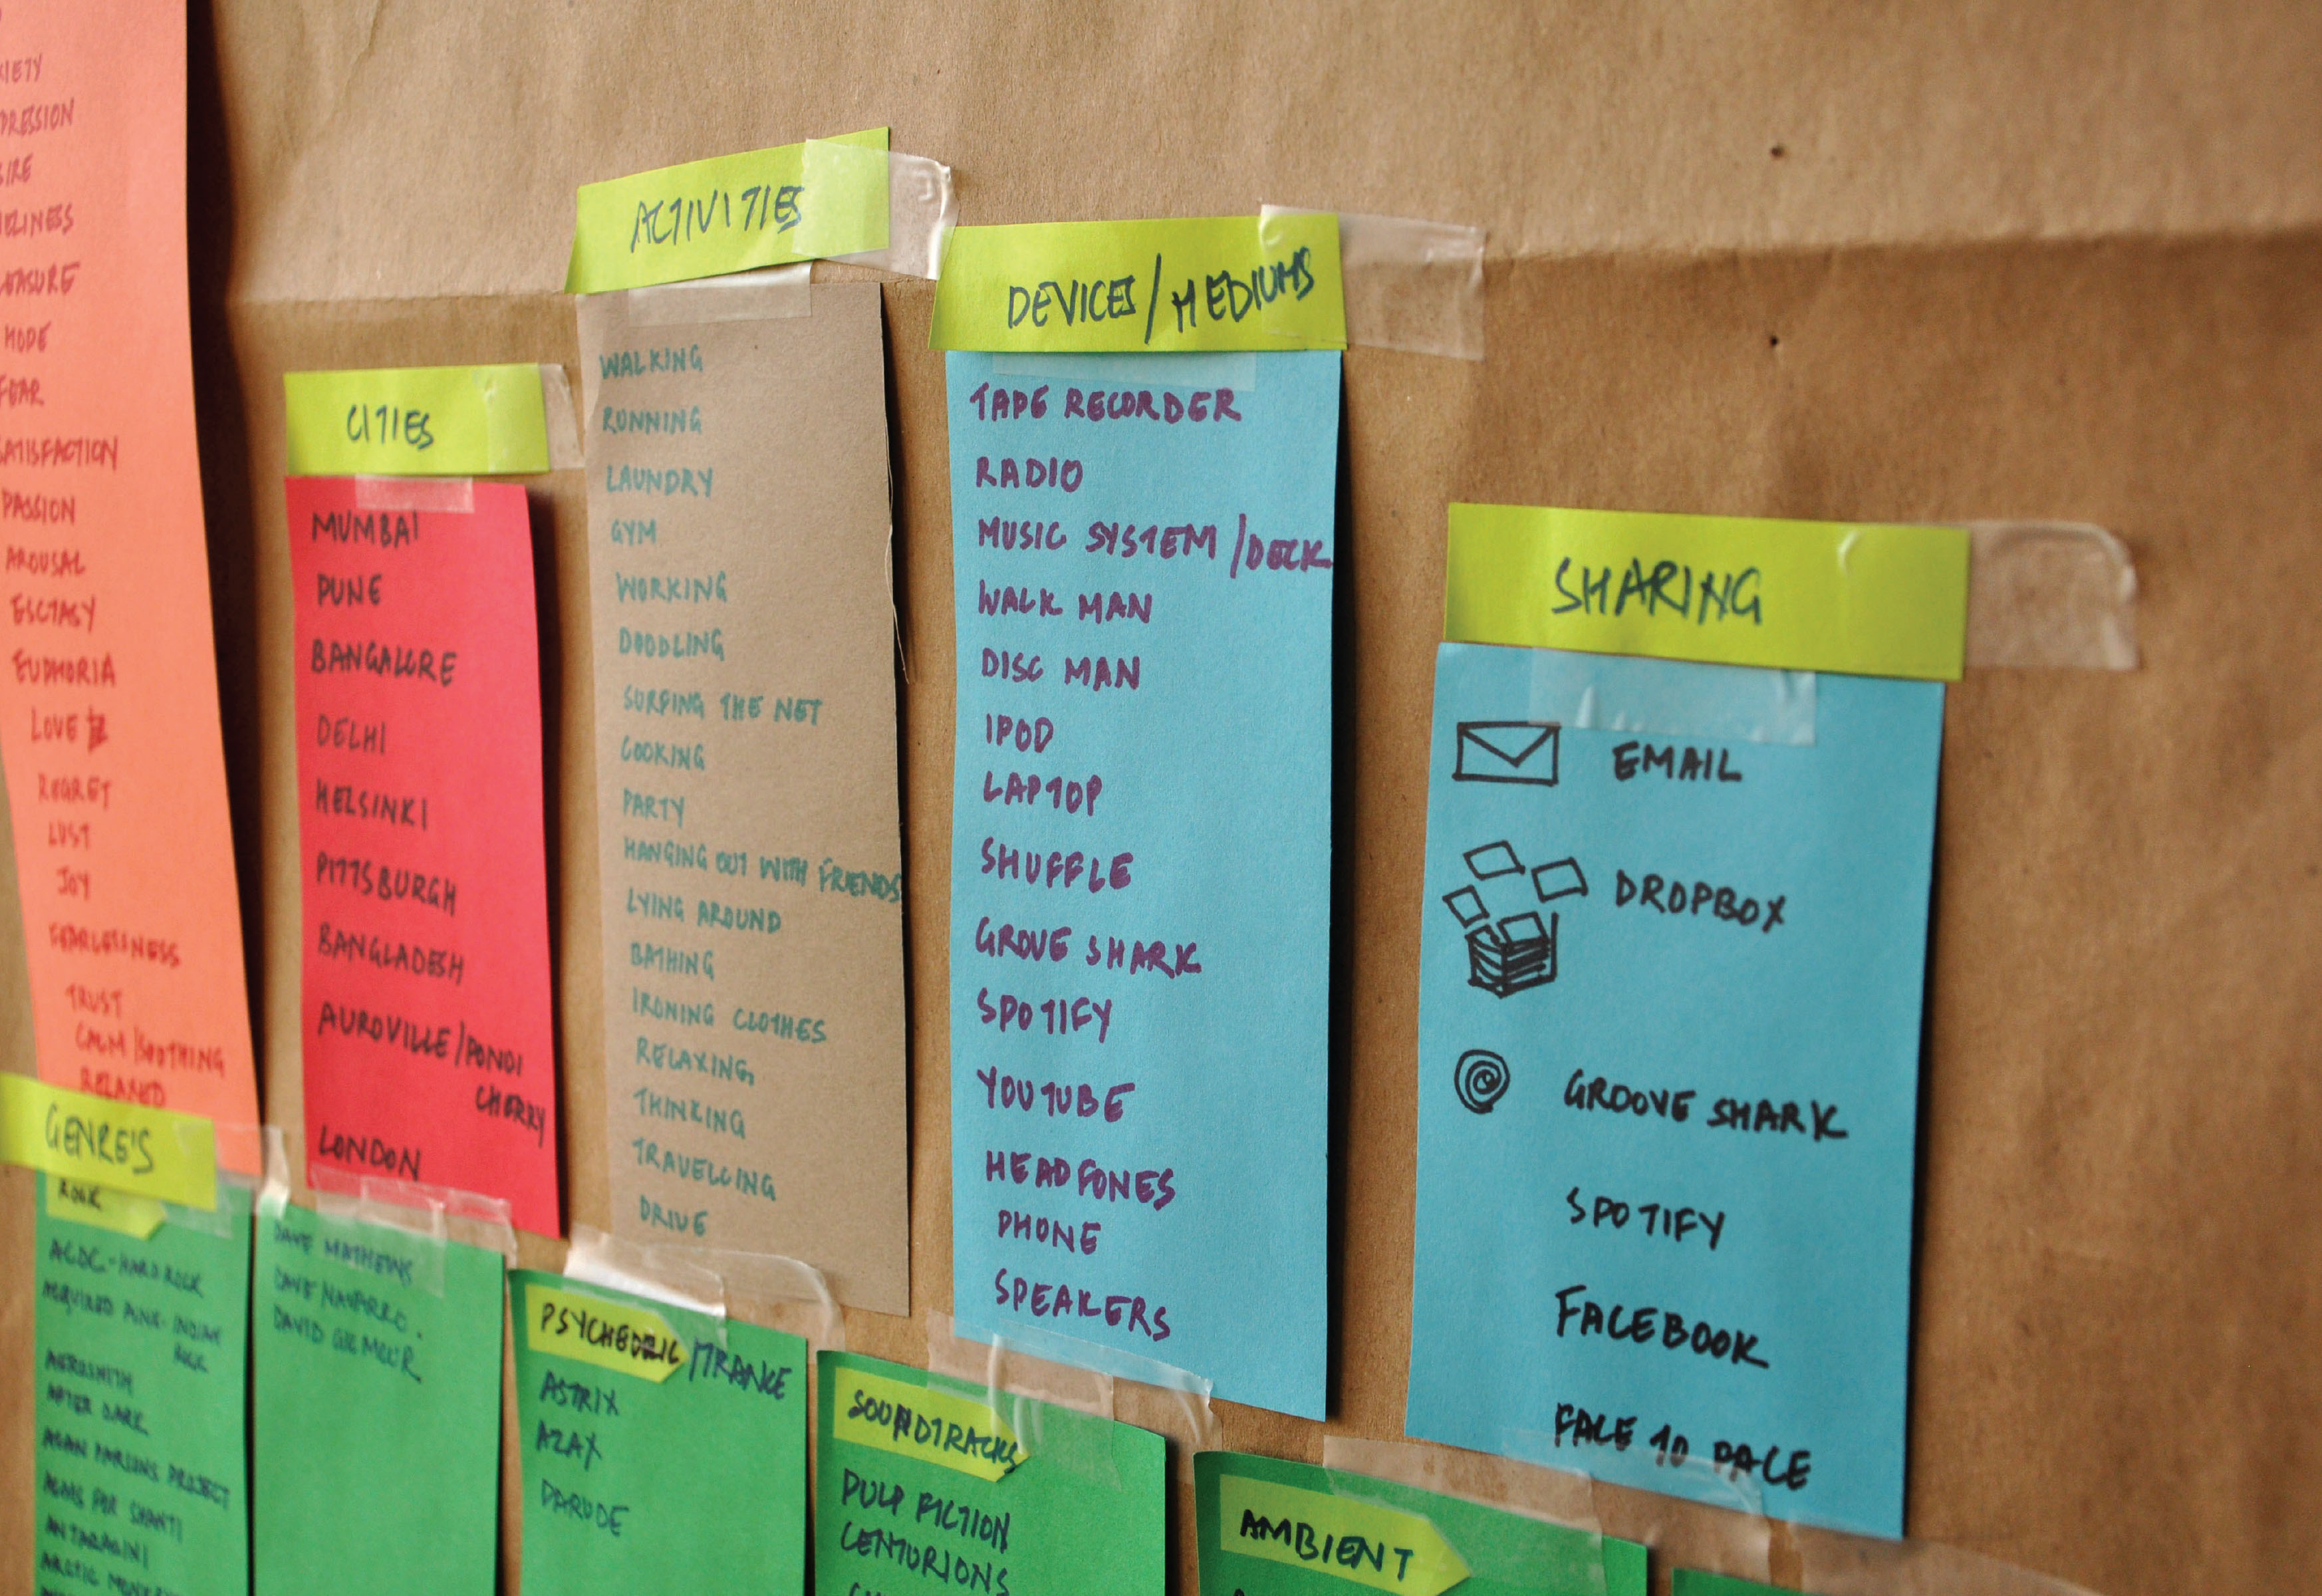 HOPE
FEAR
SATISFACTION
PASSION
AROUSAL
ESCTASY
EUPHORIA
LOVE
REGRET
LUST
JOY
FEARLESSNESS
TRUST
CALM/SOOTHING
RELAXED
CITIES
MUMBAI
PUNE
BANGALORE
DELHI
HELSINKI
PITTSBURGH
BANGLADESH
AUROVILLE/PONDI
CHERRY
LONDON
ACTIVITIES
WALKING
RUNNING
LAUNDRY
GYM
WORKING
DOODLING
SURFING THE NET
COOKING
PARTY
HANGING OUT WITH FRIENDS
LYING AROUND
BATHING
IRONING CLOTHES
RELAXING,
THINKING
TRAVELLING
DRIVE
DEVICES/MEDIUMS
TAPE RECORDER
RADIO
MUSIC SYSTEM/DECK
WALK MAN
DISC MAN
IPOD
LAPTOP
SHUFFLE
GROVE SHARK
SPOTIFY
YOUTUBE
HEADFONES
PHONE
SPEAKERS
SHARING
EMAIL
DROPBOX
GROOVE SHARK
SPOTIFY
FACEBOOK
FACE TO FACE
GENRE'S
ROCK
ACDC-HARD ROCK
INDIAN
ROCK
AEROSMITH
AFTER DARK
PARSONS PROJECT
SHANTI
ANTARAGINI
ARCTIC
DAVE MATHEWS
DAVE NAVARRO.
DAVID GILMOUR
PSYCHEDELIC/TRANCE
ASTRIX
AZAX
DARUDE
SOUNDTRACKS
PULP FICTION
CENTURIONS
AMBIENT